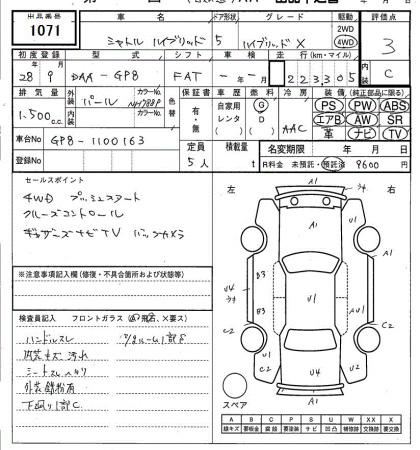 出品番号 車名 ドア形状 グレード 駆動 評価点
1071 シャトル ハイブリッド 5 ハイブリッドX 2WD 4WD 3
初度登録 型式 シフト 車検 走行(km・マイル) 内装
28年9月 DAA-GP8 FAT -年-月 223305 C
排気量 外装 パール カラーNo. NH788P 色替 保証書 車歴 燃料 冷房 装備(純正部品に限る)
1.500c.c. 内装 カラーNo. 有・無 自家用 レンタ G D AAC PS PW ABS
エアB AW SR
革 ナビ TV
車台No GP8-1100163 定員 5人 積載量 t 名変期限 年 月 日
登録No R料金 未預託・預託済 9600円
セールスポイント
4WD プッシュスタート
クルーズコントロール
ギャザーズナビTV バックカメラ
※注意事項記入欄(修復・不具合箇所および状態等)
検査員記入 フロントガラス
ハンドルスレ
内装キズ 汚れ
外装飾
下廻り1部C
左 右
A1
A1
A1
U4
B3
B3
C2
U1
AU1
C2
U1
C2
U4
U4
A1
スペア
A B C P S U W X XX
線キズ 要板金 腐蝕 要塗装 サビ 凹凸 補修跡 要交換 交換済